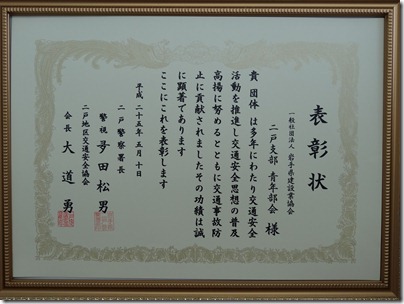 表彰状
一般社団法人 岩手県建設業協会
二戸支部 青年部会 様
貴 団体 は多年にわたり交通安全
活動を推進し交通安全思想の普及
高揚に努めるとともに交通事故防
止に貢献されましたその功績は誠
に顕著であります
ここにこれを表彰します
平成 二十五年 五月 十日
二戸警察署長
警視 田松男
二戸地区交通安全協会
会長 大道勇